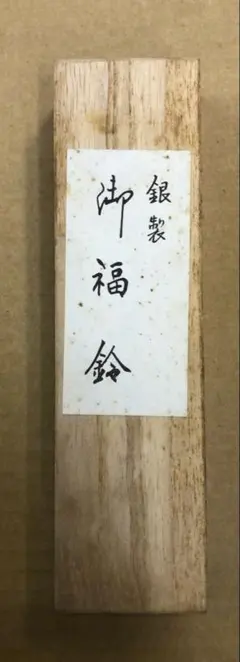 銀製
御福鈴